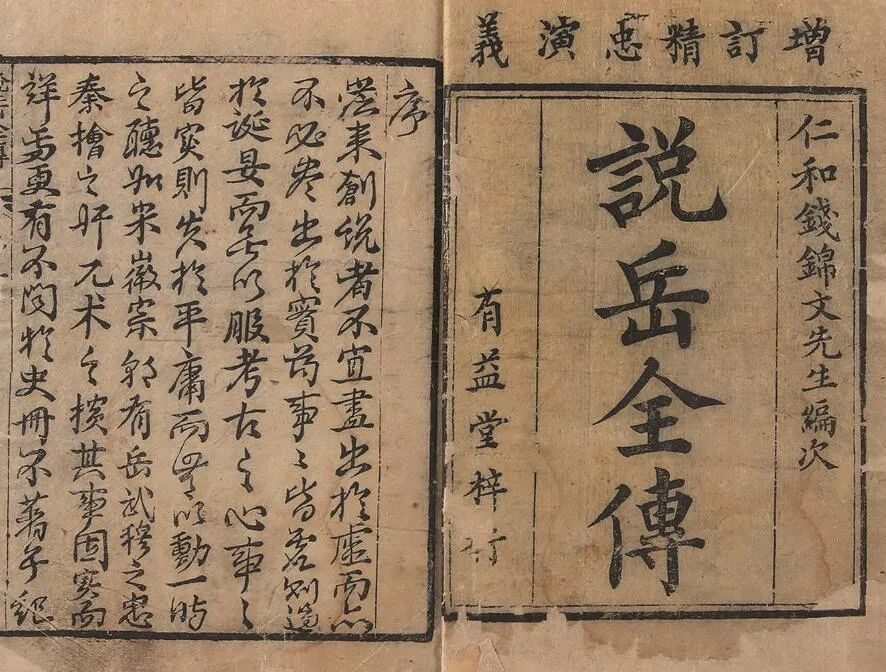 增訂精忠演義
仁和錢錦文先生編次
説岳全傳
有益堂梓行
序
從來創説者不宜盡出於虛而亦
不必盡出於實苟事々皆虛則過
於誕妄而無以服考古之心事々
皆實則失於平庸而無以動一時
之聽如宋徽宗朝有岳武穆之忠
秦檜之奸兀术之橫其事固實而
詳焉更有不聞於史冊不著于紀